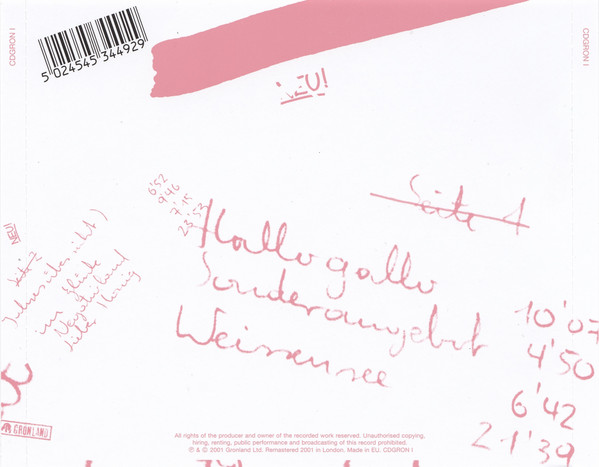 CDGRON I
5 024545 344929
NEU!
CDGRON I
Seite 1
6'52
9'46
7'15
23'53
Hallogallo
Sonderangebot
Weissensee
10'07
4'50
6'42
21'39
NEU!
im Glück
Negativland
Lieber Honig
GRÖNLAND
All rights of the producer and owner of the recorded work reserved. Unauthorised copying,
hiring, renting, public performance and broadcasting of this record prohibited.
℗ & © 2001 Gronland Ltd. Remastered 2001 in London. Made in EU. CDGRON I